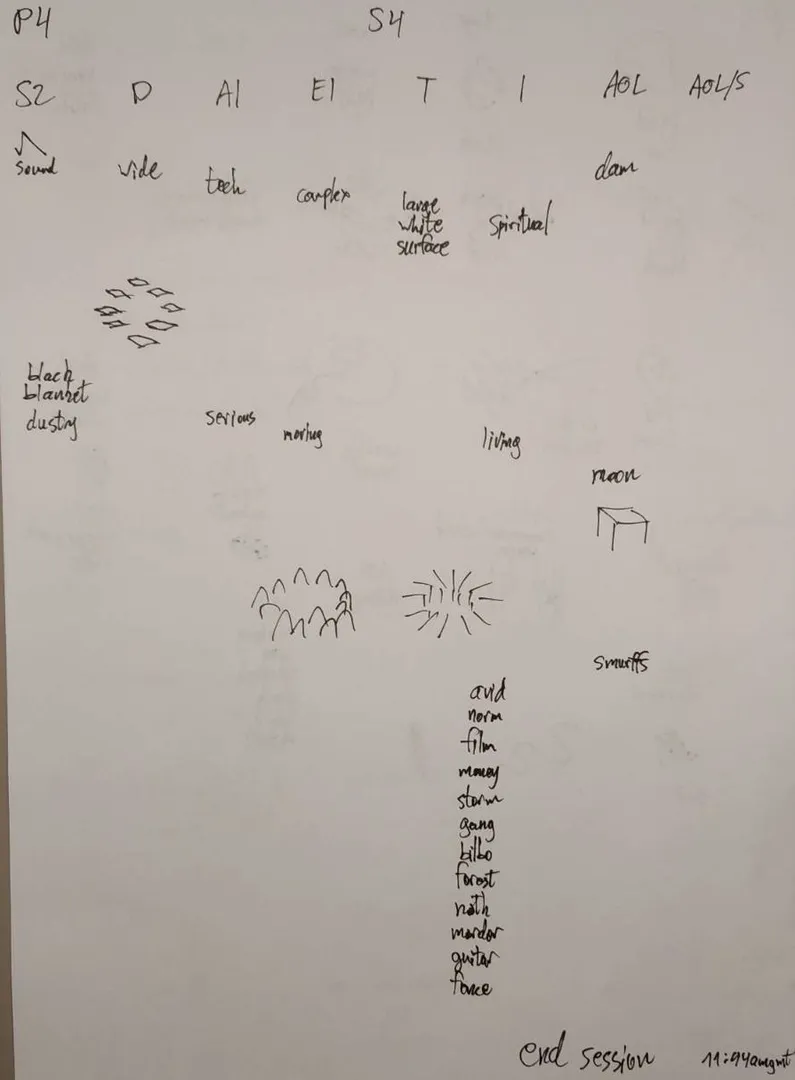 P4 S4
S2 D AI EI T I AOL AOL/S
sound wide tech complex large white surface spiritual dam
black
blanket
dusty
serious moving living
moon
smurffs
avid
norm
film
money
storm
gang
bilbo
forest
math
mordor
guitar
force
end session 11:44amgmt